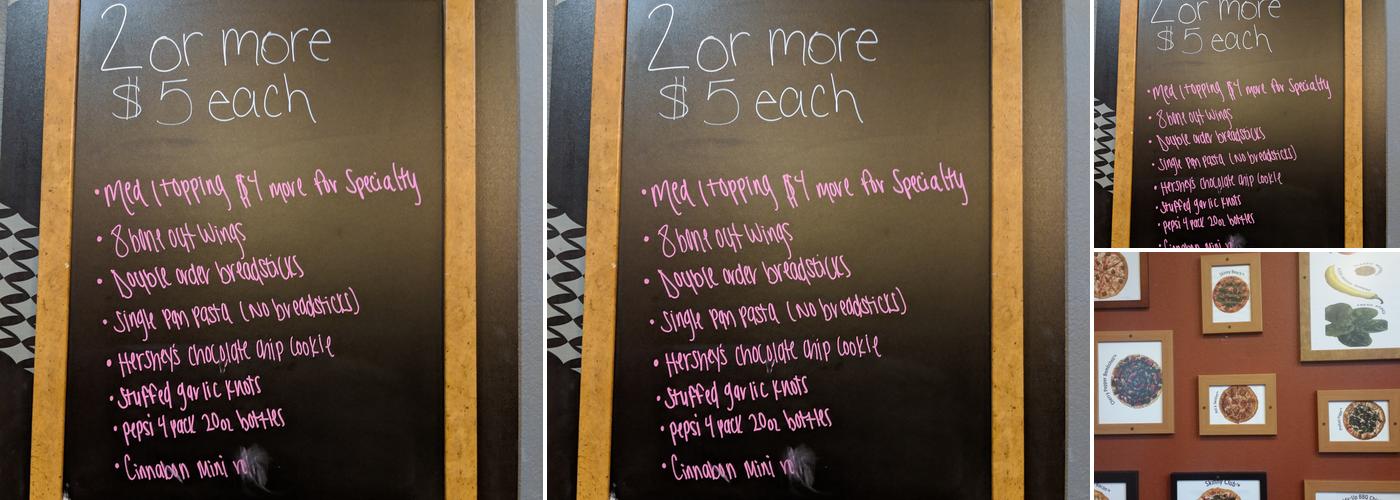 2 or more
$5 each
• Med 1 topping $4 more for Specialty
• 8 bone out wings
• Double order breadsticks
• Single pan pasta (No breadsticks)
• Hershey's chocolate chip cookie
• Stuffed garlic knots
• pepsi 4 pack 20oz bottles
• Cinnabon mini r
2 or more
$5 each
• Med 1 topping $4 more for Specialty
• 8 bone out wings
• Double order breadsticks
• Single pan pasta (No breadsticks)
• Hershey's chocolate chip cookie
• Stuffed garlic knots
• pepsi 4 pack 20oz bottles
• Cinnabon mini r
2 or more
$5 each
• Med 1 topping $4 more for Specialty
• 8 bone out wings
• Double order breadsticks
• Single pan pasta (No breadsticks)
• Hershey's chocolate chip cookie
• Stuffed garlic knots
• pepsi 4 pack 20oz bottles
• Cinnabon mini r
Skinny Beach™
Cherry Pepper Bombshell™
Skinny Club™